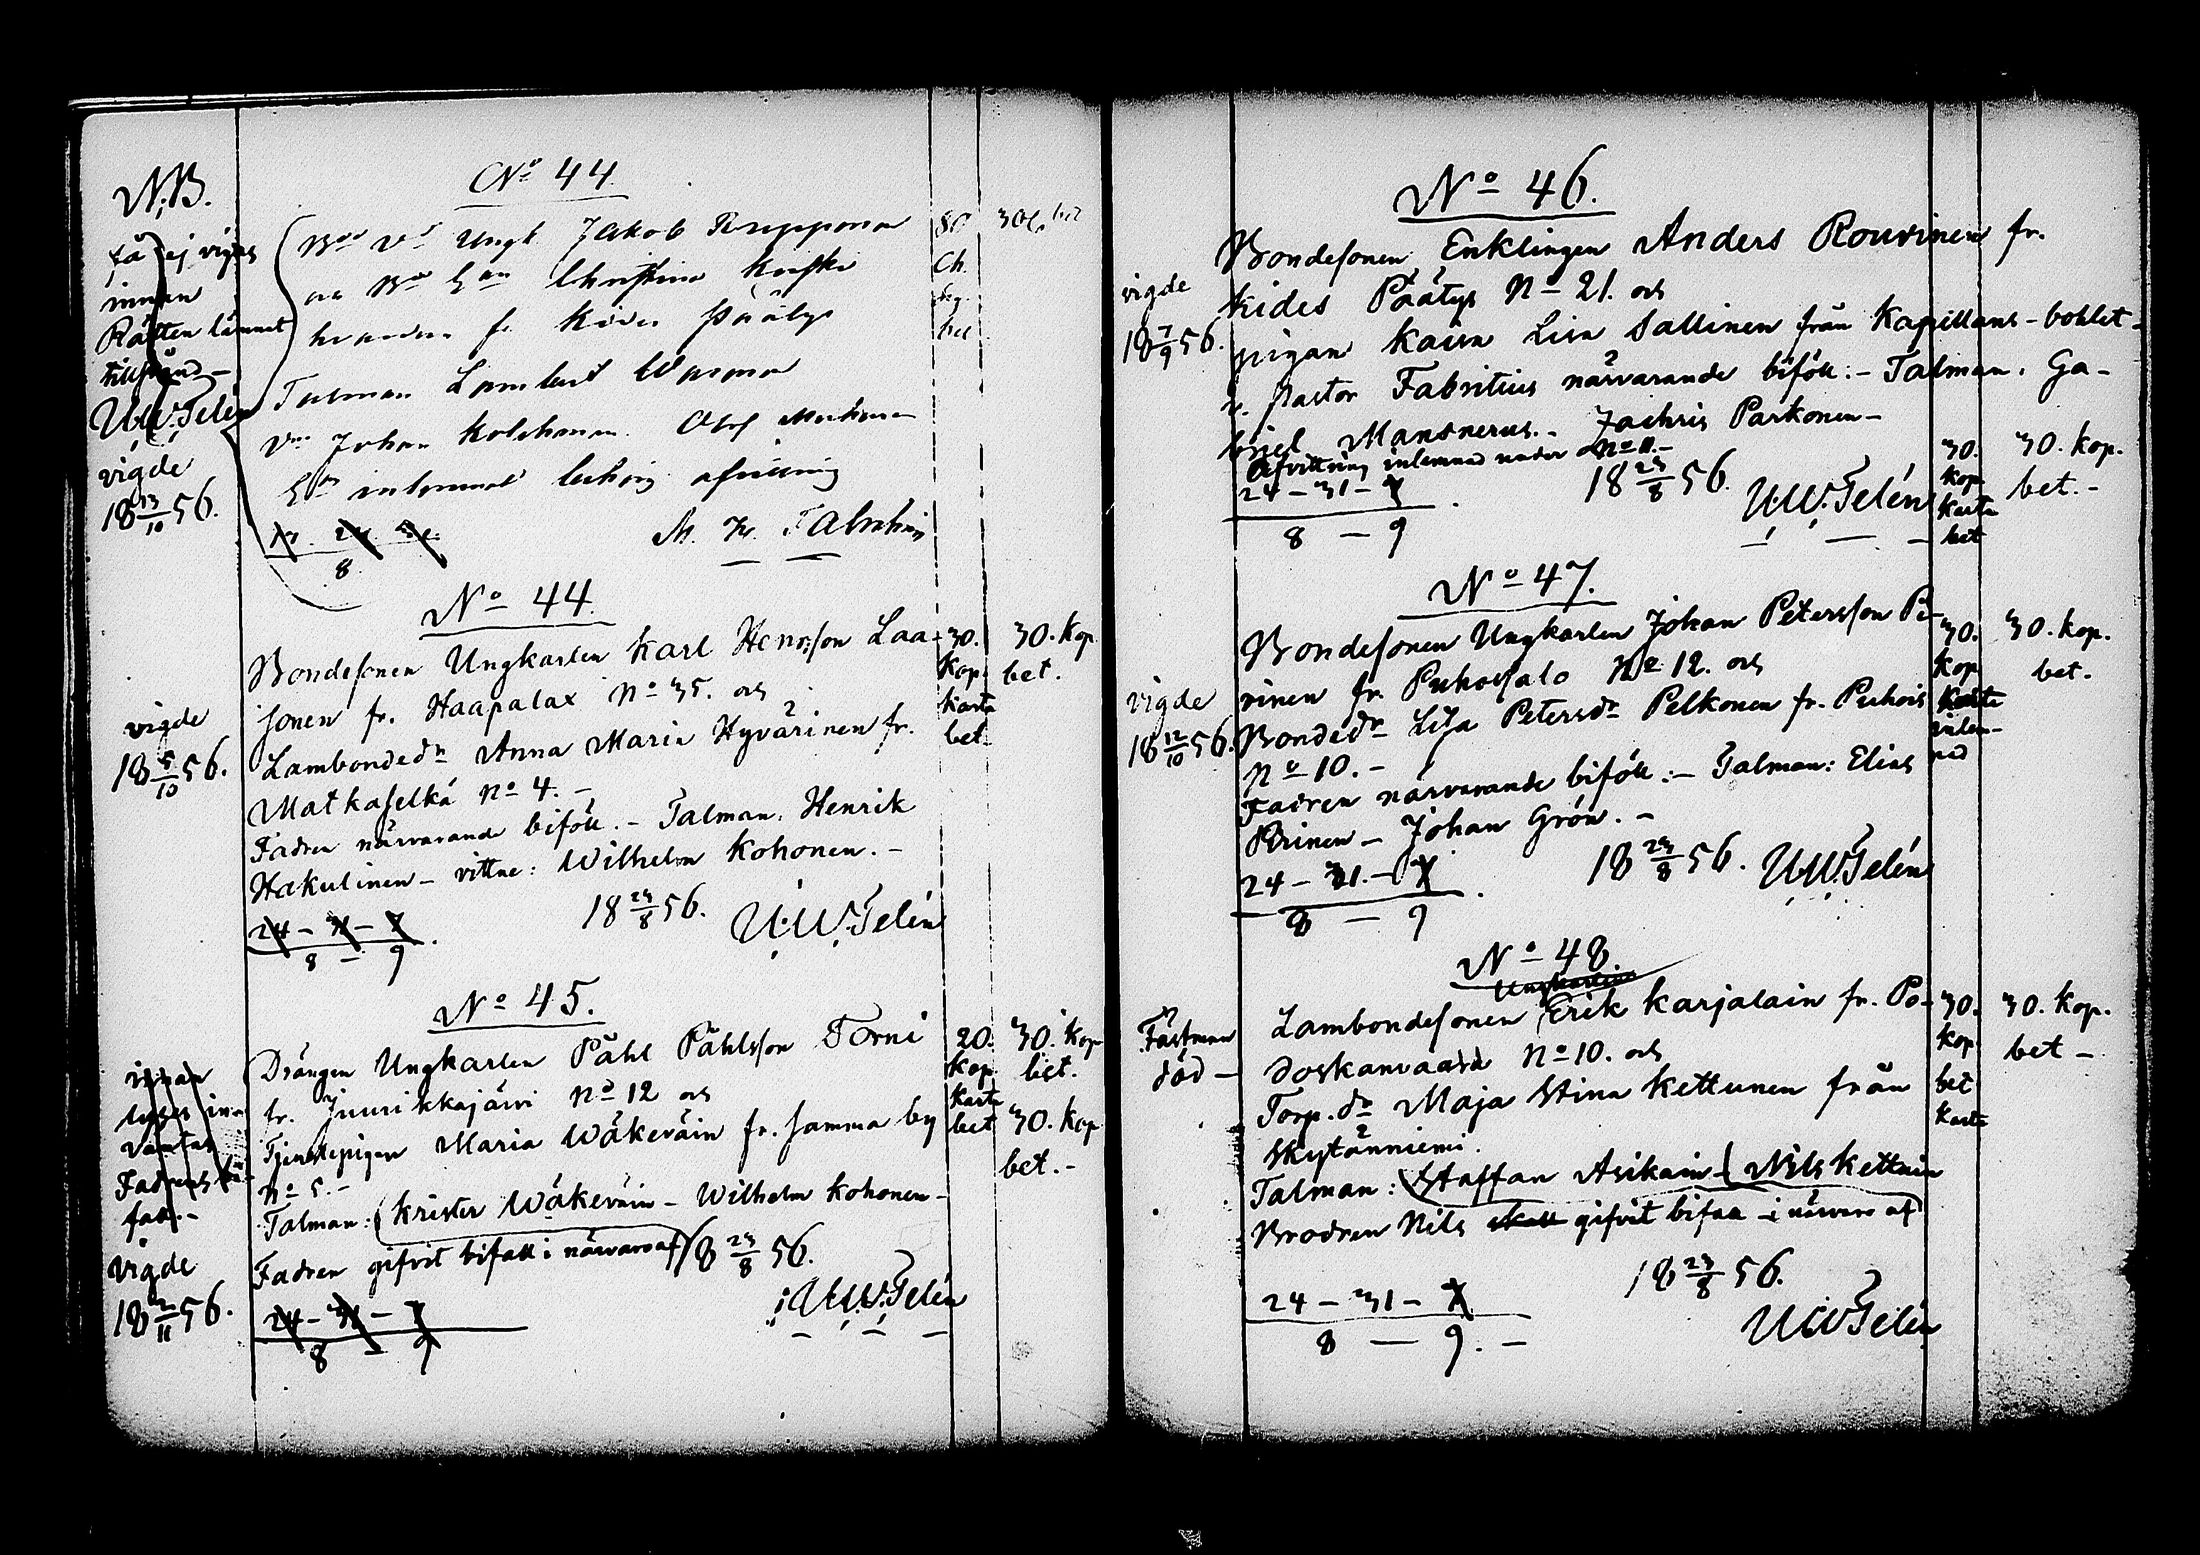 N.B.
få ej vigas
innan
Rätten lämnat
tillstånd -
U.W. Telén
vigde
18 13/10 56.
No 44.
Ungk. Jakob
Christina
hvardera fr. Kides Päätys
Talman Lambert
Johan Kolehmainen. Olof
8
M. W. Fabritius
30 k. bet
No 44.
Bondesonen Ungkarlen Karl Henrsson Laa-
sonen fr. Haapalax No 35. och
Lambondedr Anna Maria Hyvärinen fr.
Matkaselkä No 4. -
Fadren närvarande biföll. - Talman. Henrik
Hakulinen - vittne: Wilhelm Kohonen. -
18 23/8 56. U.W. Telén
24 - 31 - 7
8 - 9
vigde
18 5/10 56.
30.
kop.
karta
bet.
30. kop.
bet.
No 45.
Drängen Ungkarlen Påhl Påhlsson Torni
fr. Juurikkajärvi No 12 och
Tjenstepigan Maria Wäkeväin fr. samma by
No 5. -
Talman: (Krister Wäkeväin - Wilhelm Kohonen -
Fadren gifvit bifall i närvaro af) 18 23/8 56.
U.W. Telén
24 - 31 - 7
8 - 9
innan
Fadrens
vigde
18 2/11 56.
20.
kop.
karta
bet
30. kop
bet.
30. kop
bet. -
No 46.
Bondesonen Enklingen Anders Rouvinen fr.
Kides Päätys No 21. och
pigan Kaisa Lisa Sallinen från Kapellans-bohlet -
v. Pastor Fabritius närvarande biföll: - Talman. Ga-
briel Mansnerus. - Zachris Parkonen -
Afvittring inlemnad under No 11. -
24 - 31 - 7
8 - 9
18 23/8 56. U.W. Telén
vigde
18 7/9 56.
30.
kop
karta
bet
30. kop.
bet. -
No 47.
Bondesonen Ungkarlen Johan Petersson Pi-
rinen fr. Puhossalo No 12. och
Bondedr Lisa Petersdr Pelkonen fr. Puhois
No 10. -
Fadren närvarande biföll: - Talman: Elias
Pirinen - Johan Grön. -
24 - 31. - 7
8 - 9
18 23/8 56. U.W. Telén
vigde
18 12/10 56.
30.
kop
karta
inlem-
nad
30. kop.
bet.
No 48.
Ungkarlen
Lambondesonen Erik Karjalain fr. Po-
doskanvaara No 10. och
Torp.dr Maja Stina Kettunen från
Skytänniemi.
Talman: (Staffan Asikain - (Nils Kettuin
Brodren Nils skall gifvit bifall - i närvaro af)
18 23/8 56.
24 - 31 - 7
8 - 9. -
U.W. Telén
Fästman
död -
30.
kop
bet
karta
30. kop.
bet -